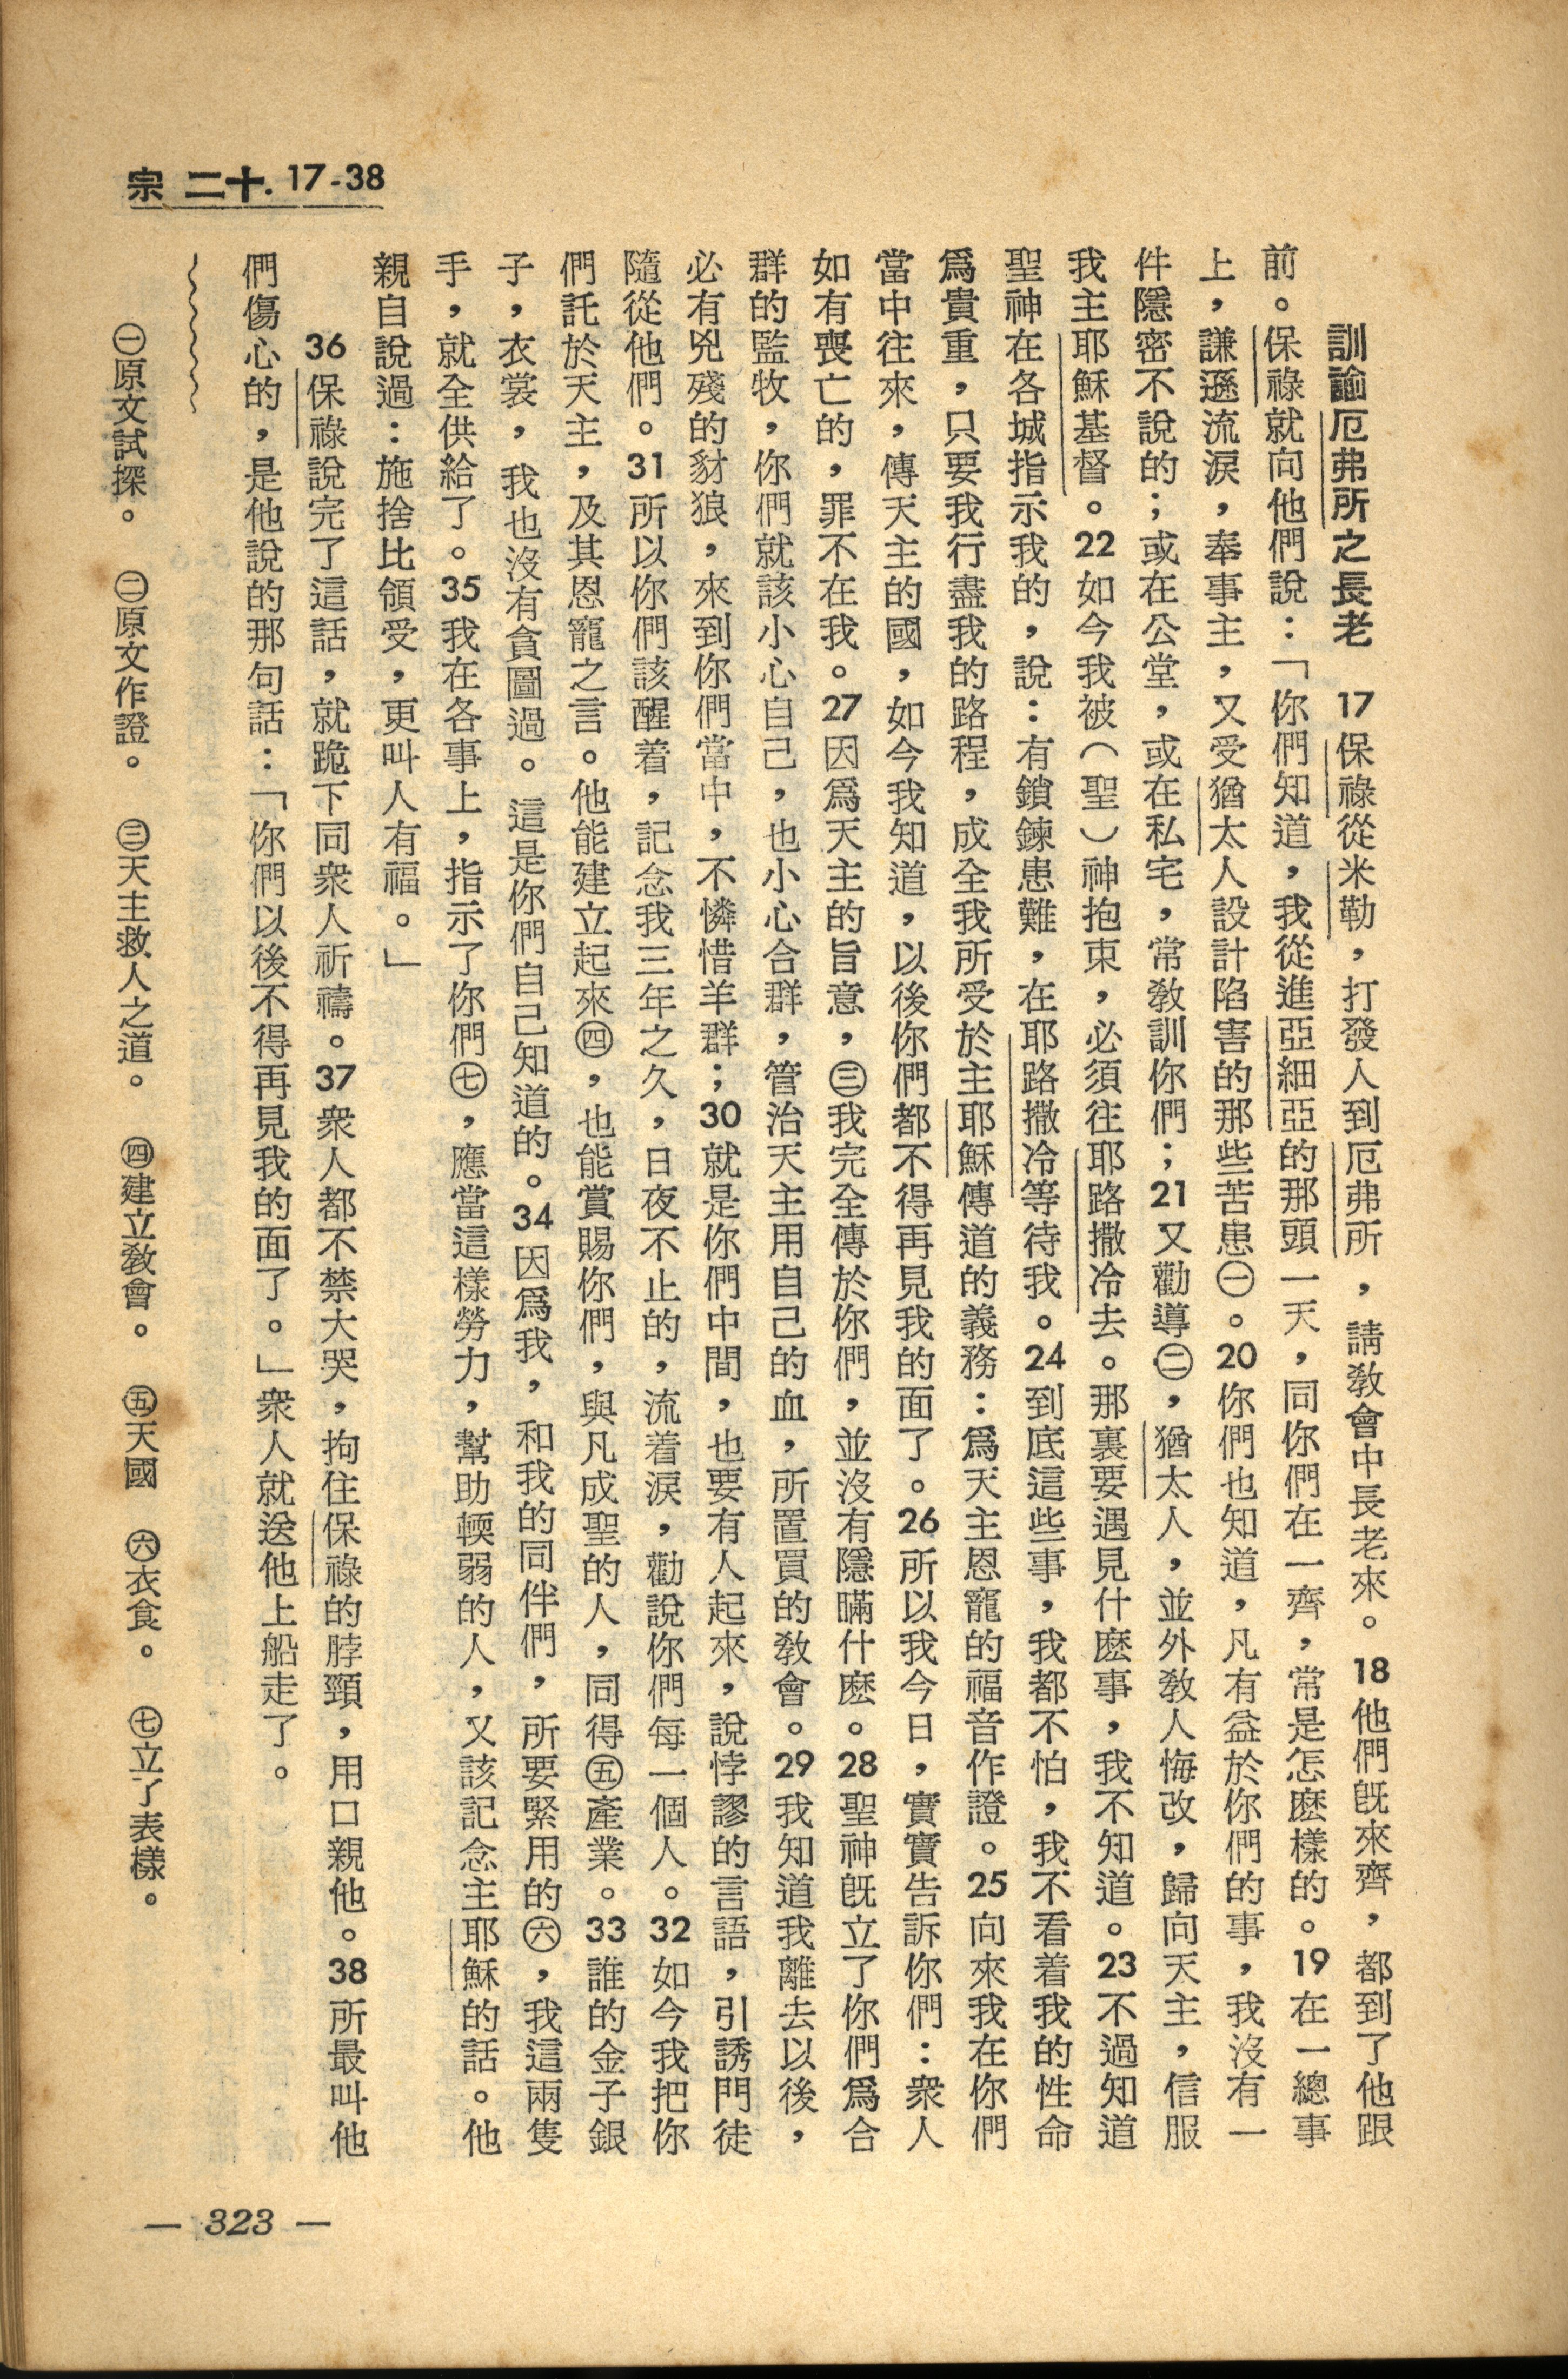 宗 二十. 17-38
訓諭厄弗所之長老　17保祿從米勒，打發人到厄弗所，請敎會中長老來。18他們旣來齊，都到了他跟
前。保祿就向他們說：「你們知道，我從進亞細亞的那頭一天，同你們在一齊，常是怎麽樣的。19在一總事
上，謙遜流淚，奉事主，又受猶太人設計陷害的那些苦患㊀。20你們也知道，凡有益於你們的事，我沒有一
件隱密不說的；或在公堂，或在私宅，常敎訓你們；21又勸導㊁，猶太人，並外敎人悔改，歸向天主，信服
我主耶穌基督。22如今我被（聖）神抱束，必須往耶路撒冷去。那裏要遇見什麽事，我不知道。23不過知道
聖神在各城指示我的，說：有鎖鍊患難，在耶路撒冷等待我。24到底這些事，我都不怕，我不看着我的性命
爲貴重，只要我行盡我的路程，成全我所受於主耶穌傳道的義務：爲天主恩寵的福音作證。25向來我在你們
當中往來，傳天主的國，如今我知道，以後你們都不得再見我的面了。26所以我今日，實實告訴你們：衆人
如有喪亡的，罪不在我。27因爲天主的旨意，㊂我完全傳於你們，並沒有隱瞞什麽。28聖神旣立了你們爲合
群的監牧，你們就該小心自己，也小心合群，管治天主用自己的血，所置買的敎會。29我知道我離去以後，
必有兇殘的豺狼，來到你們當中，不憐惜羊群；30就是你們中間，也要有人起來，說悖謬的言語，引誘門徒
隨從他們。31所以你們該醒着，記念我三年之久，日夜不止的，流着淚，勸說你們每一個人。32如今我把你
們託於天主，及其恩寵之言。他能建立起來㊃，也能賞賜你們，與凡成聖的人，同得㊄產業。33誰的金子銀
子，衣裳，我也沒有貪圖過。這是你們自己知道的。34因爲我，和我的同伴們，所要緊用的㊅，我這兩隻
手，就全供給了。35我在各事上，指示了你們㊆，應當這樣勞力，幫助輭弱的人，又該記念主耶穌的話。他
親自說過：施捨比領受，更叫人有福。」
36保祿說完了這話，就跪下同衆人祈禱。37衆人都不禁大哭，拘住保祿的脖頸，用口親他。38所最叫他
們傷心的，是他說的那句話：「你們以後不得再見我的面了。」衆人就送他上船走了。
㊀原文試探。　㊁原文作證。　㊂天主救人之道。　㊃建立敎會。　㊄天國　㊅衣食。　㊆立了表樣。
— 323 —